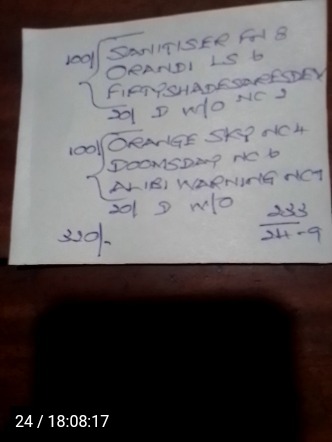 100/ SANITISER FN 8
ORANDI LS 6
FIFTYSHADESARESDEV
20/ D W/O NC 2
100/ ORANGE SKY NC4
DOOMSDAY NC 6
ALIBI WARNING NC7
20/ D W/O
320/-
233
24-9
24 / 18:08:17